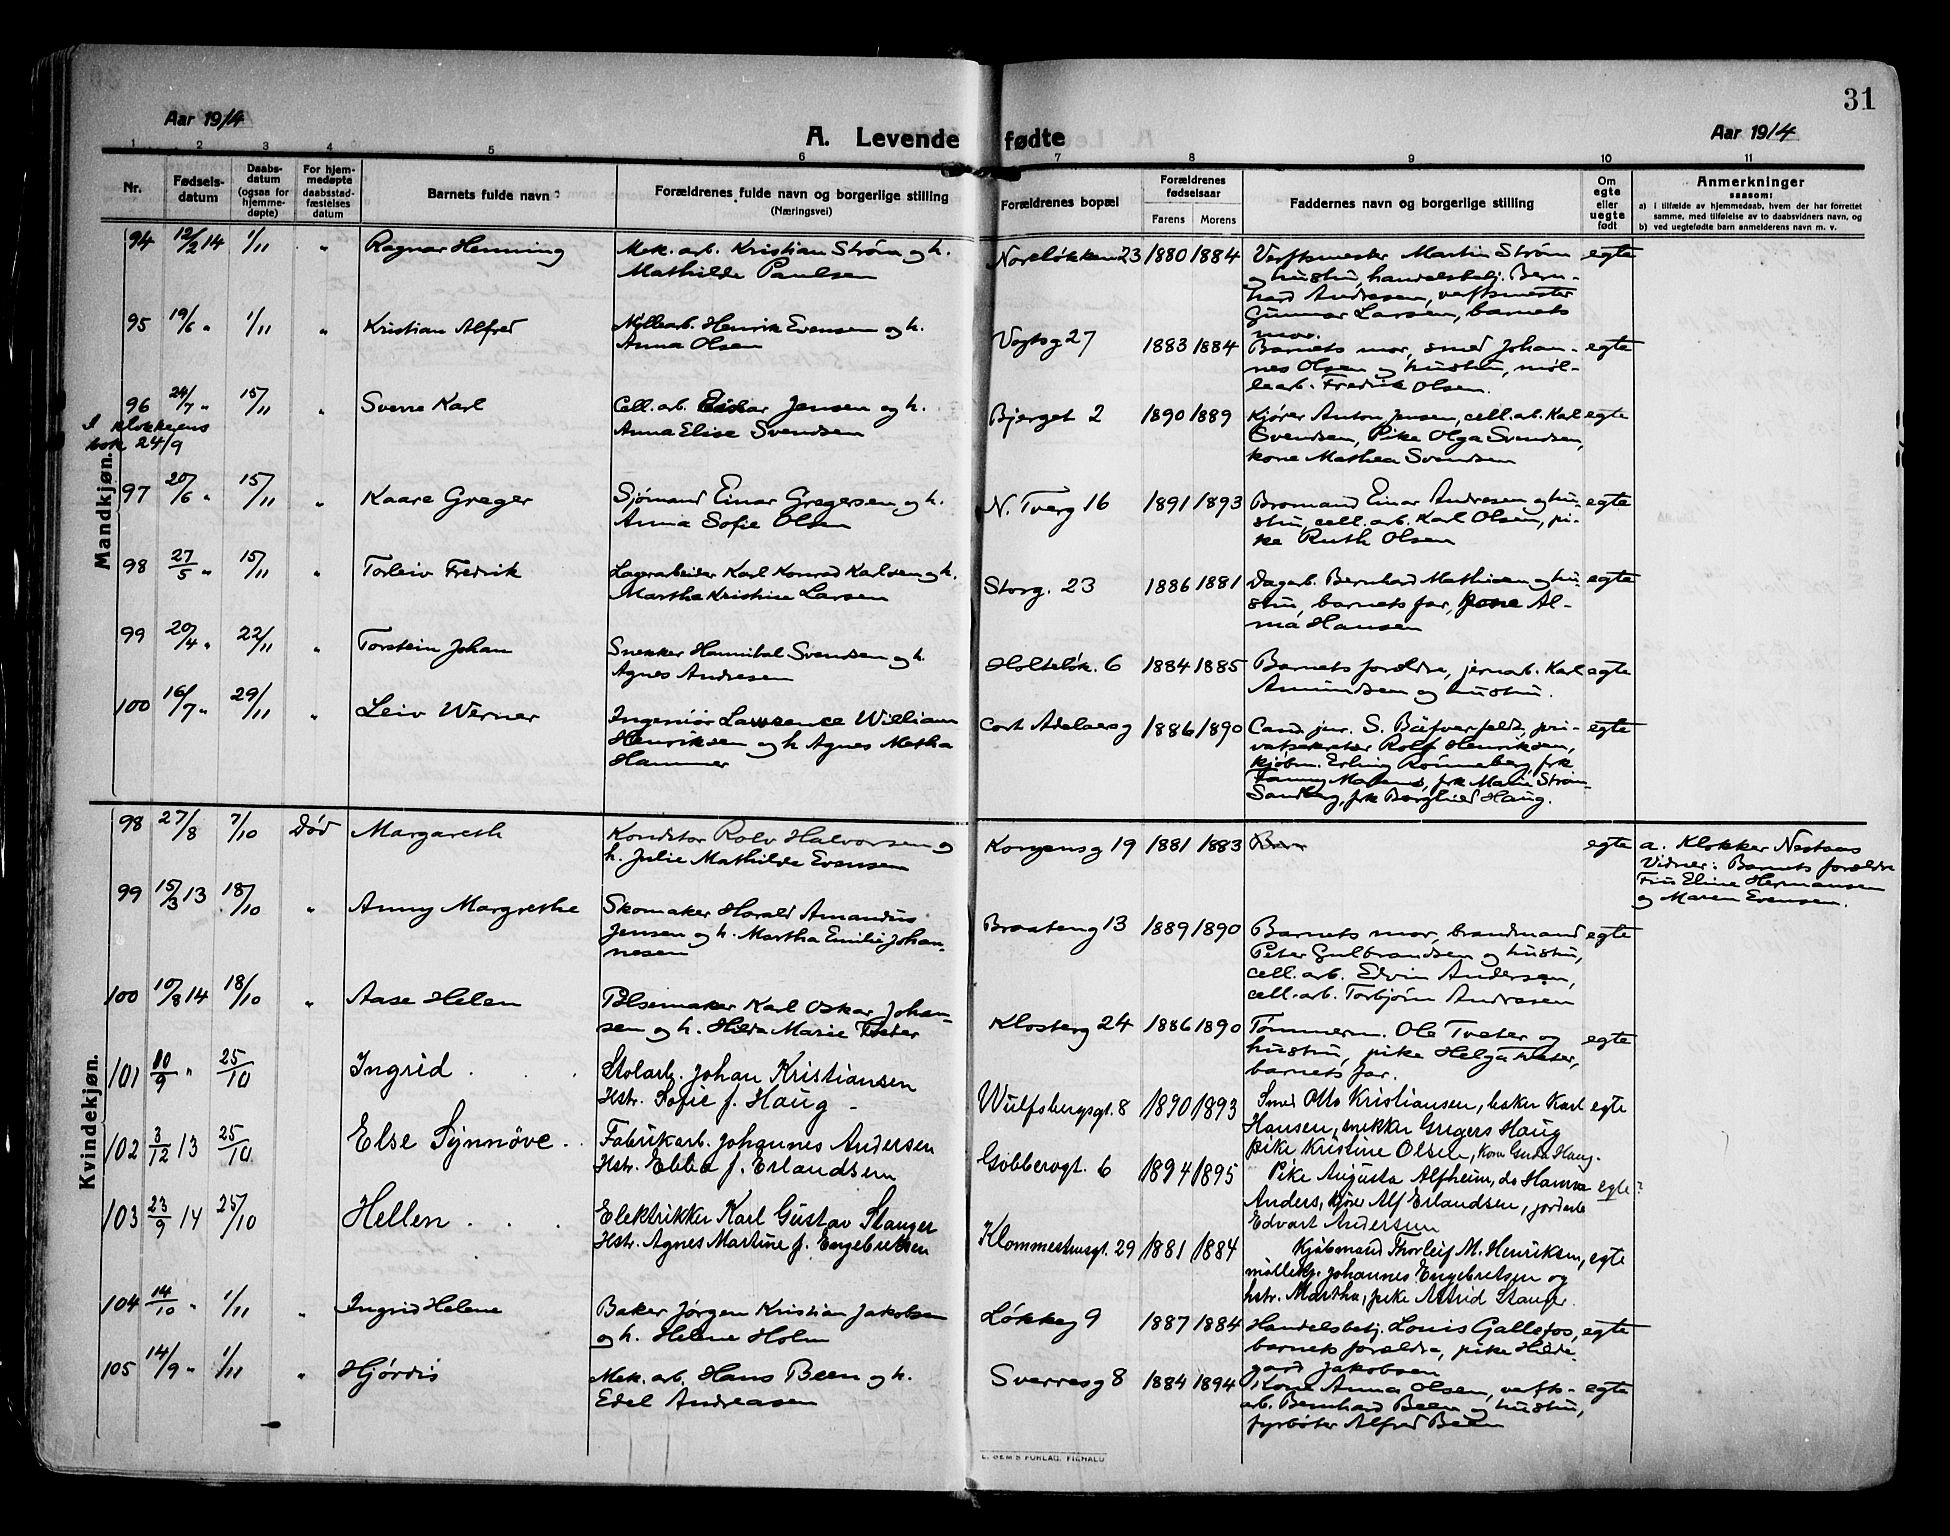 31
Aar 1914
A. Levende fødte
Aar 1914
1 2 3 4 5 6 7 8 9 10 11
Nr.
Fødsels-
datum
Daabs-
datum
(ogsaa for
hjemme-
døpte)
For hjem-
medøpte
daabsstad-
fæstelses
datum
Barnets fulde navn
Forældrenes fulde navn og borgerlige stilling
(Næringsvei)
Forældrenes bopæl
Forældrenes
fødselsaar
Farens Morens
Faddernes navn og borgerlige stilling
Om
egte
eller
uegte
født
Anmerkninger
saasom:
a) i tilfælde av hjemmedaab, hvem der har forrettet
samme, med tilføielse av to daabsvidners navn, og
b) ved uegtefødte barn anmelderens navn m. v.
Mandkjøn.
94 12/2 14 1/11 " Ragnar Henning
Mek. arb. Kristian Strøm og h.
Mathilde Paulsen
Noreløkken 23 1880 1884
Verftsmester Martin Strøm
og hustru, handelsbetj. Bern-
hard Andresen, verftsmester
Gunnar Larsen, barnets
mor.
egte
95 19/6 " 1/11 " Kristian Alfred
Møllearb. Henrik Evensen og h.
Anna Olsen
Vogtsg 27 1883 1884
Barnets mor, smed Johan-
nes Olsen og hustru, møl-
learb. Fredrik Olsen.
egte
96 24/7 " 15/11 " Sverre Karl
I klokkerens
bok 24/9
Cell. arb. Einar Jensen og h.
Anna Elise Svendsen
Bjerget 2 1890 1889
Kjører Anton Jensen, cell. arb. Karl
Svendsen, Pike Olga Svendsen,
kone Mathea Svendsen
egte
97 20/6 " 15/11 " Kaare Greger
Sjømand Einar Gregersen og h.
Anna Sofie Olsen
N. Tverg 16 1891 1893
Bromand Einar Andresen og hu-
stru, cell. arb. Karl Olsen, pi-
ke Ruth Olsen
egte
98 27/5 " 15/11 " Torleiv Fredrik
Lagerarbeider Karl Konrad Karlsen og h.
Martha Kristine Larsen
Storg. 23 1886 1881
Dagarb. Bernhard Mathisen og hu-
stru, barnets far, kone Al-
ma Hansen
egte
99 20/4 " 22/11 " Torstein Johan
Snekker Hannibal Svendsen og h.
Agnes Andresen
Holteløk. 6 1884 1885
Barnets forældre, jernarb. Karl
Amundsen og hustru.
egte
100 16/7 " 29/11 " Leiv Werner
Ingeniør Lawrence William
Henriksen og h Agnes Metha
Hammer
Cort Adelaers g 1886 1890
Cand jur. S. Bülverfeldt, pri-
vatsekretær Rolf Henriksen,
kjøbm. Erling Rønneberg, frk
Fanny, frk Marie Strøm
Sandberg, frk Borghild Haug.
egte
Kvindekjøn.
98 27/8 7/10 Død Margareth
Konditor Rolv Halvorsen og
h. Julie Mathilde Evensen
Kongens g 19 1881 1883
Bar
egte
a. Klokker Nestaas
Vidner: Barnets forældre
Fru Eline Hermansen
og Maren Evensen.
99 15/3 13 18/10 " Anny Margrethe
Skomaker Harald Amandus
Jensen og h. Martha Emilie Johan-
nesen
Braateng 13 1889 1890
Barnets mor, brandmand
Peter Gulbrandsen og hustru,
cell. arb. Edvin Andersen,
cell. arb. Torbjørn Andresen
egte
100 10/8 14 18/10 " Aase Helen
Pølsemaker Karl Oskar Johan-
sen og h. Hilda Marie Tveter
Klosterg 24 1886 1890
Tømmerm. Ole Tveter og
hustru, pike Helga Tveter,
barnets far.
egte
101 10/9 " 25/10 Ingrid . . .
Stolarb. Johan Kristiansen
Hstr. Sofie f. Haug -
Wulfsbergsgt. 8 1890 1893
Smed Otto Kristiansen, baker Karl
Hansen, snekker Gregers Haug
pike Kristine Olsen, Kone Gerda Haug.
egte
102 3/12 13 25/10 Else Synnöve . .
Fabrikarb. Johannes Andersen
Hstr. Ebba f. Erlandsen
Gobberogt. 6 1894 1895
Pike Augusta Alfheim, do Hanna
Anders, kjør Alf Erlandsen, jordarb
Edvart Andersen
egte?
103 23/9 14 25/10 Hellen . . .
Elektrikker Karl Gustav Stanger
Hstr. Agnes Martine f. Engebretsen
Klommestensgt. 29 1881 1884
Kjøbmand Thorleif M. Henriksen,
møllebj. Johannes Engebretsen og
hstr. Martha, pike Astrid Stanger.
egte
104 14/10 " 1/11 " Ingrid Helene
Baker Jørgen Kristian Jakobsen
og h. Helene Holm
Løkkeg 9 1887 1884
Handelsbetj. Louis Gallefos,
barnets forældre, pike Hilde-
gard Jakobsen
egte
105 14/9 " 1/11 " Hjørdis
Mek. arb. Hans Been og h.
Edel Andreasen
Sverresg 8 1884 1894
Kone Anna Olsen, verfts-
arb. Bernhard Been og hustru,
fyrbøter Alfred Been
egte
E. SEM'S FORLAG, FREDRIKSHALD